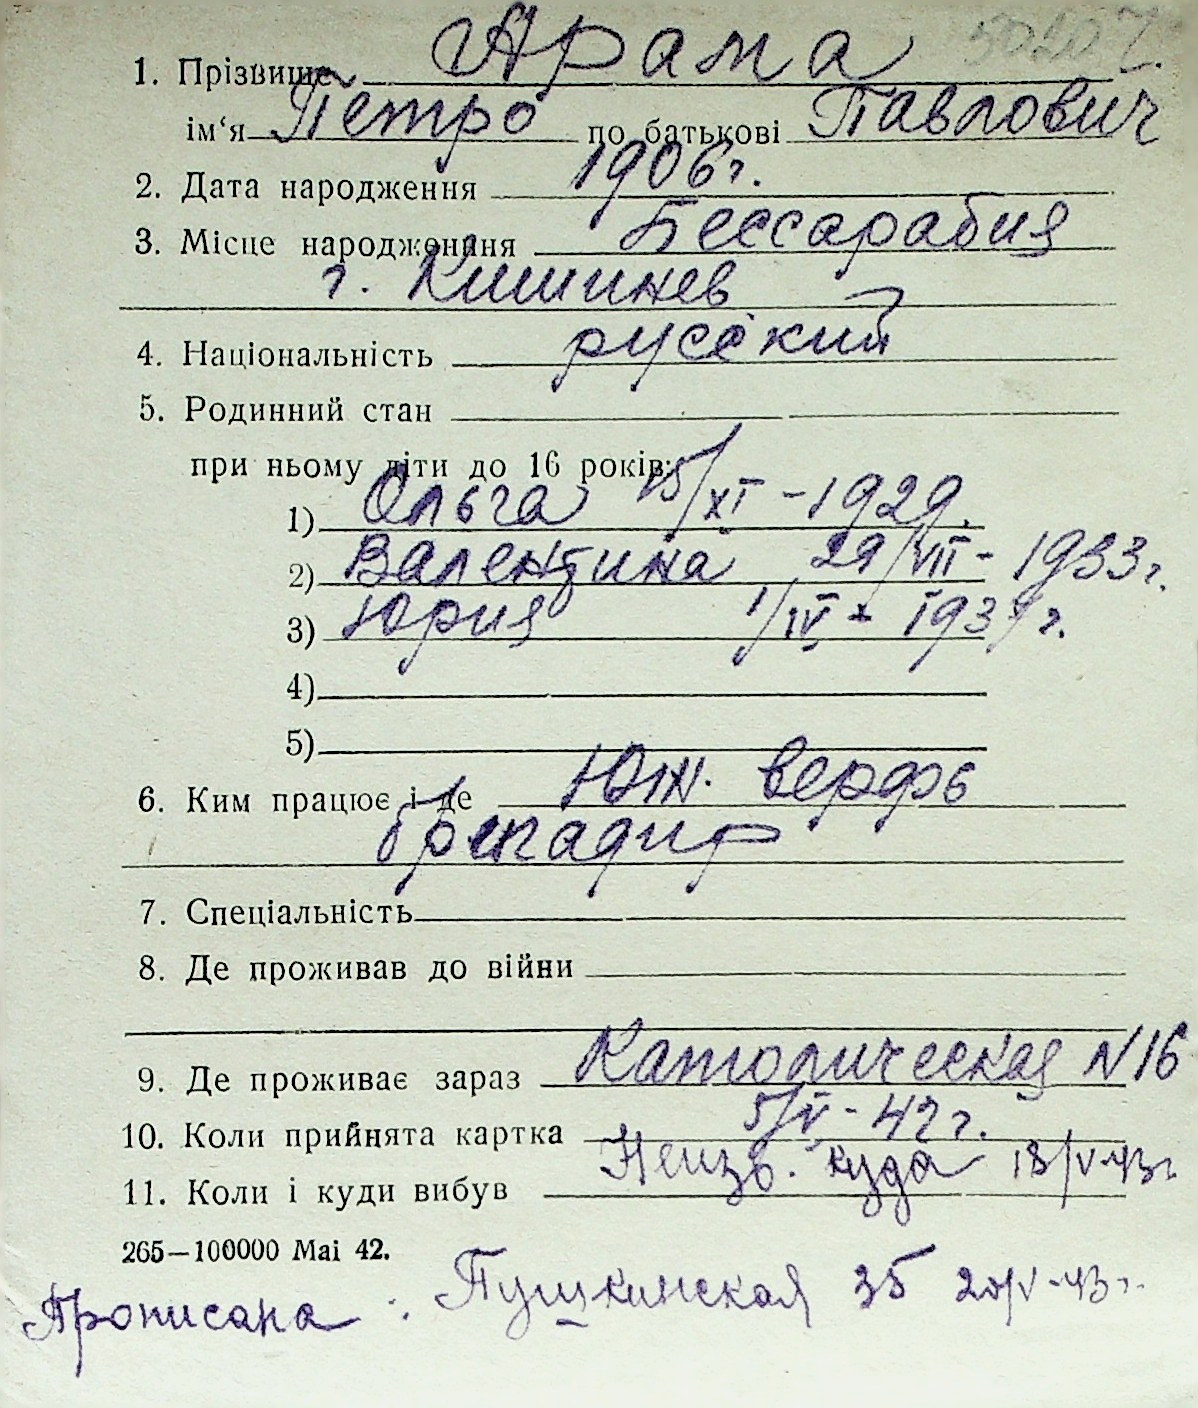 50207.
1. Прізвище Арама
ім'я Петро по батькові Павлович
2. Дата народження 1906 г.
3. Місце народження Бессарабия
г. Кишинев
4. Національність русский
5. Родинний стан
при ньому діти до 16 років:
1) Ольга 15/XI - 1929.
2) Валентина 29/VII - 1933 г.
3) Юрия 1/IV - г.
4)
5)
6. Ким працює і де Юж. верфь
бригадир
7. Спеціальність
8. Де проживав до війни
9. Де проживає зараз Католическая N 16
10. Коли прийнята картка 5/V - 42 г.
11. Коли і куди вибув Неизв. куда 18/V-43 г.
265—100000 Mai 42.
Прописана : Пушкинская 35 20/V-43 г.